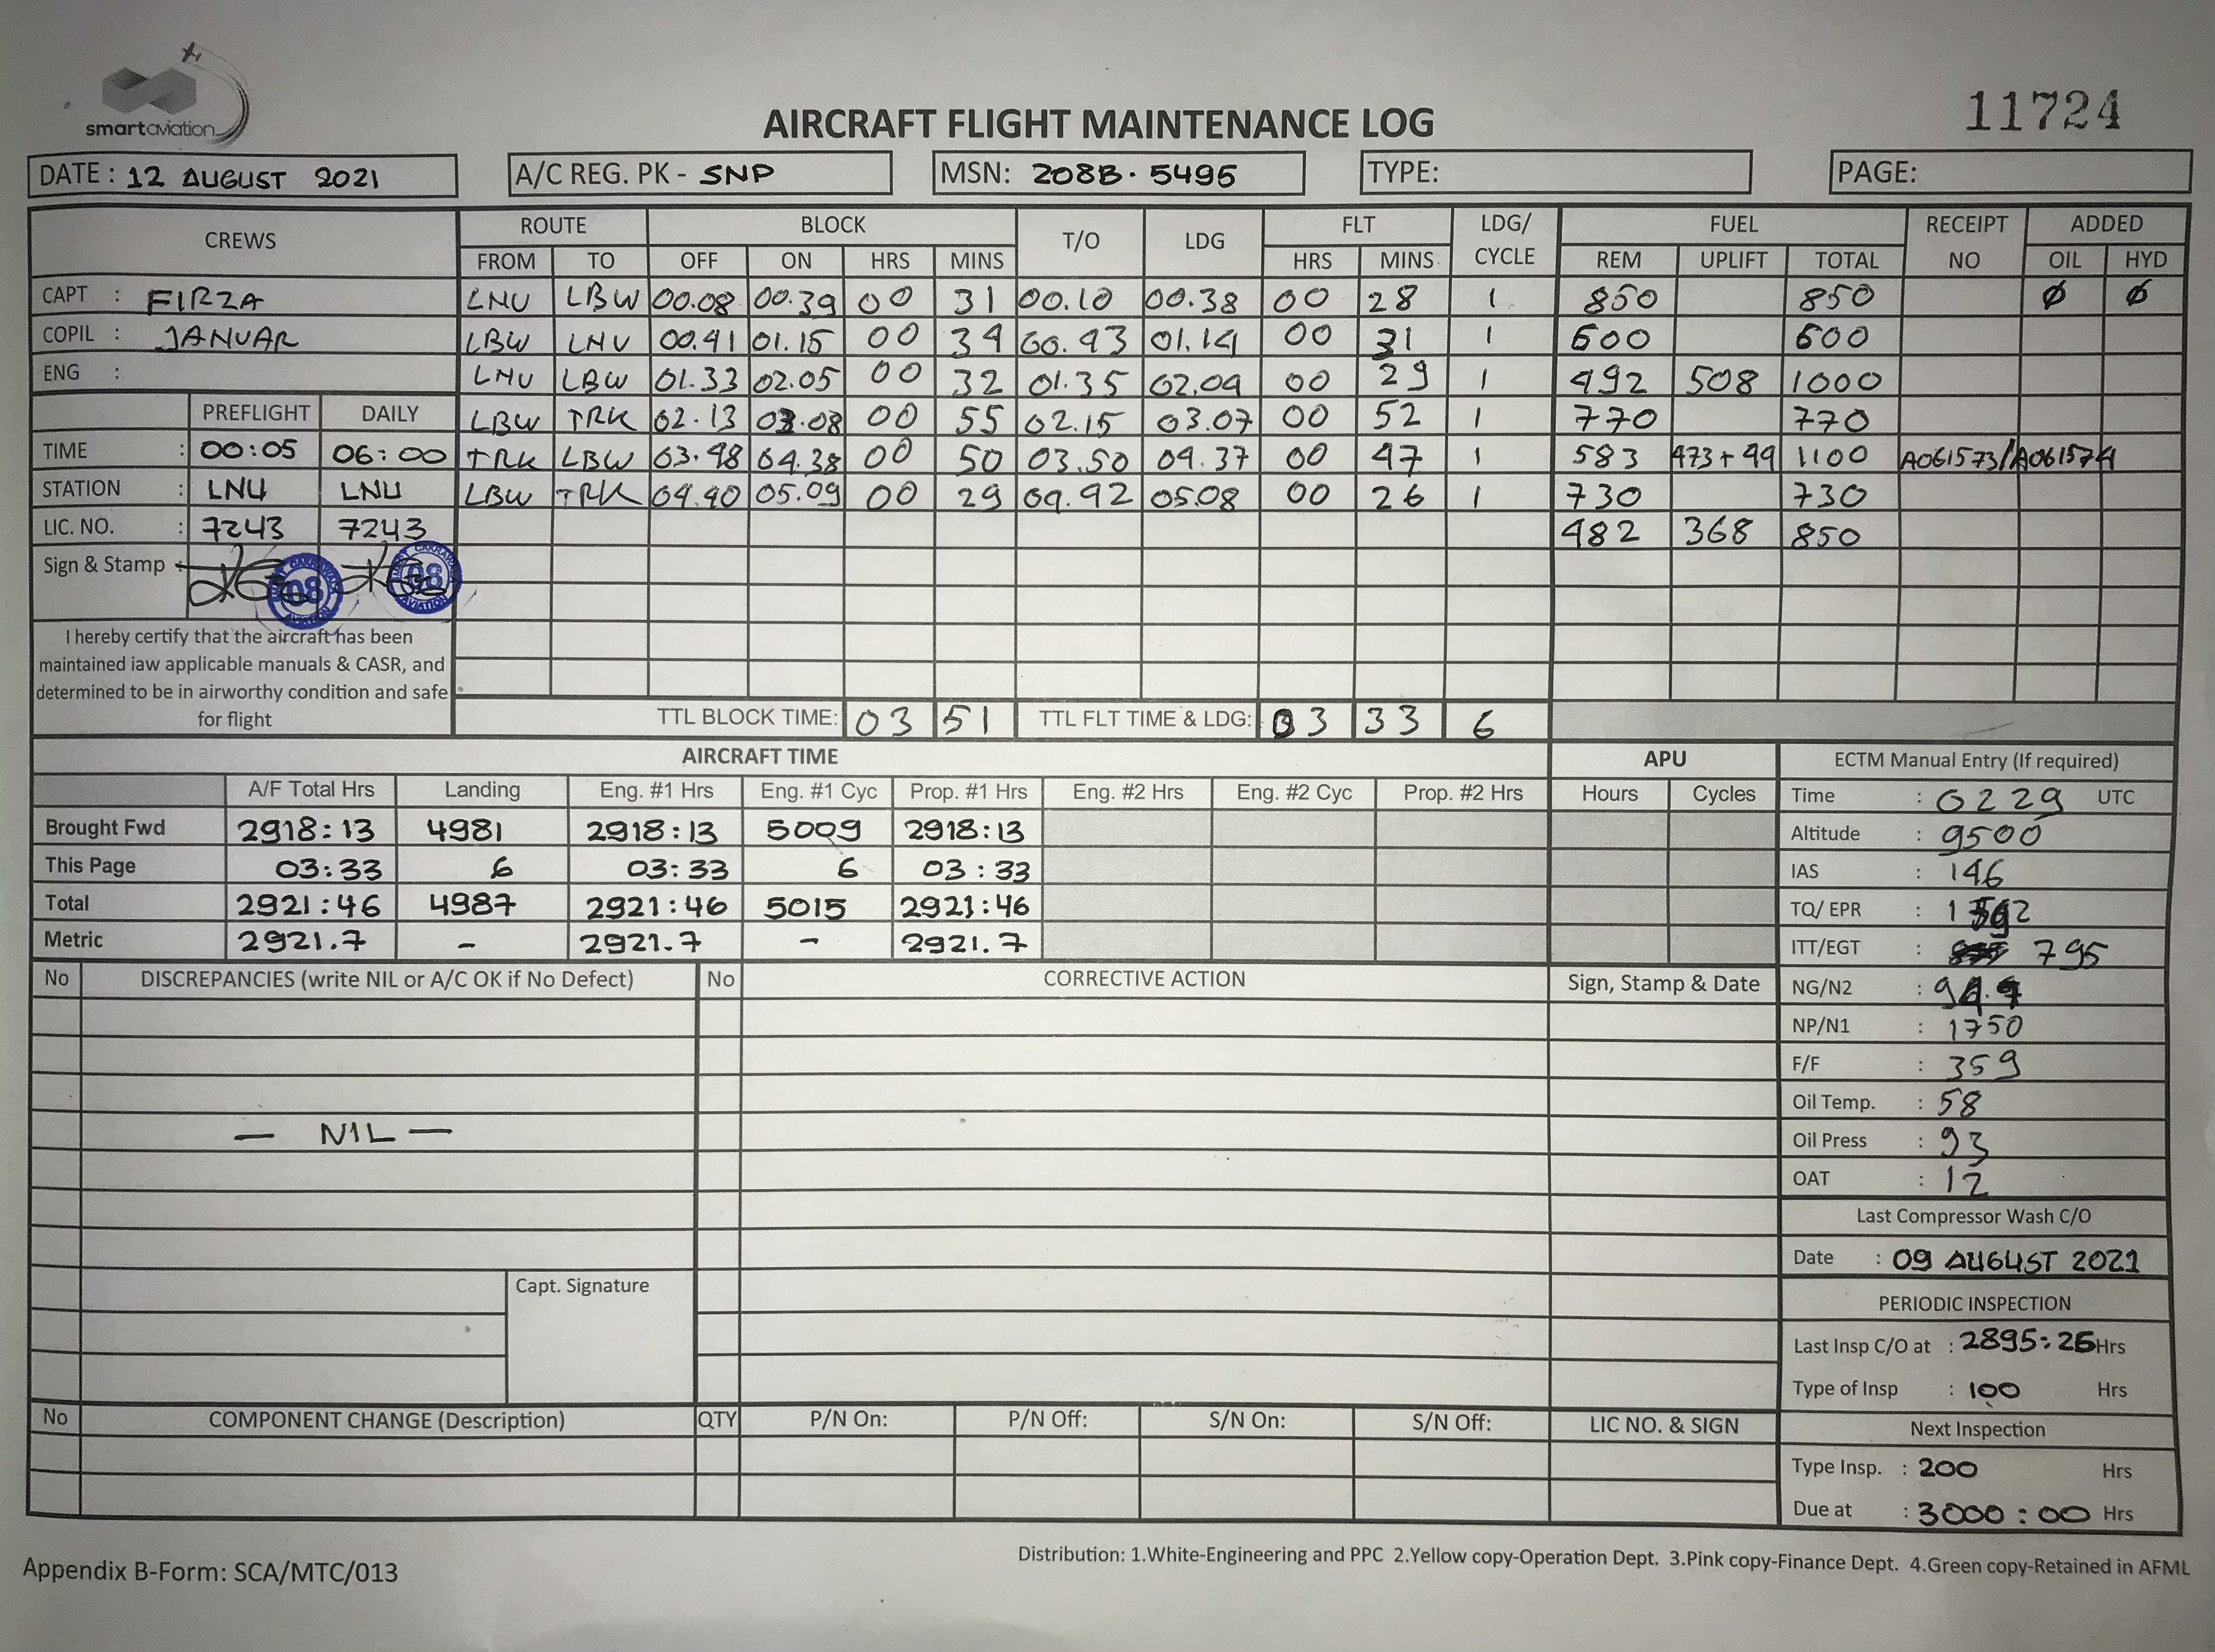 smartaviation
11724
AIRCRAFT FLIGHT MAINTENANCE LOG
DATE : 12 AUGUST 2021 A/C REG. PK - SNP MSN: 208B.5495 TYPE: PAGE:
CREWS ROUTE BLOCK T/O LDG FLT LDG/ CYCLE FUEL RECEIPT NO ADDED
FROM TO OFF ON HRS MINS HRS MINS REM UPLIFT TOTAL OIL HYD
CAPT : FIRZA LNU LBW 00.08 00.39 00 31 00.10 00.38 00 28 1 850 850 Ø Ø
COPIL : JANUAR LBW LNU 00.41 01.15 00 34 00.43 01.14 00 31 1 600 600
ENG : LNU LBW 01.33 02.05 00 32 01.35 02.04 00 29 1 492 508 1000
PREFLIGHT DAILY LBW TRK 02.13 03.08 00 55 02.15 03.07 00 52 1 770 770
TIME : 00:05 06:00 TRK LBW 03.48 04.38 00 50 03.50 04.37 00 47 1 583 473+44 1100 A061573/A061574
STATION : LNU LNU LBW TRK 04.40 05.09 00 29 04.42 05.08 00 26 1 730 730
LIC. NO. : 7243 7243 482 368 850
Sign & Stamp : 08 08
AVIATION
I hereby certify that the aircraft has been
maintained iaw applicable manuals & CASR, and
determined to be in airworthy condition and safe
for flight
TTL BLOCK TIME: 03 51 TTL FLT TIME & LDG: 03 33 6
AIRCRAFT TIME APU ECTM Manual Entry (If required)
A/F Total Hrs Landing Eng. #1 Hrs Eng. #1 Cyc Prop. #1 Hrs Eng. #2 Hrs Eng. #2 Cyc Prop. #2 Hrs Hours Cycles Time : 0229 UTC
Brought Fwd 2918:13 4981 2918:13 5009 2918:13 Altitude : 9500
This Page 03:33 6 03:33 6 03:33 IAS : 146
Total 2921:46 4987 2921:46 5015 2921:46 TQ/ EPR :
Metric 2921.7 - 2921.7 - 2921.7 ITT/EGT : 795
No DISCREPANCIES (write NIL or A/C OK if No Defect) No CORRECTIVE ACTION Sign, Stamp & Date NG/N2 :
NP/N1 : 1750
F/F : 359
Oil Temp. : 58
— NIL — Oil Press : 93
OAT : 12
Last Compressor Wash C/O
Date : 09 AUGUST 2021
Capt. Signature
PERIODIC INSPECTION
Last Insp C/O at : 2895:26 Hrs
Type of Insp : 100 Hrs
No COMPONENT CHANGE (Description) QTY P/N On: P/N Off: S/N On: S/N Off: LIC NO. & SIGN Next Inspection
Type Insp. : 200 Hrs
Due at : 3000:00 Hrs
Appendix B-Form: SCA/MTC/013
Distribution: 1.White-Engineering and PPC 2.Yellow copy-Operation Dept. 3.Pink copy-Finance Dept. 4.Green copy-Retained in AFML